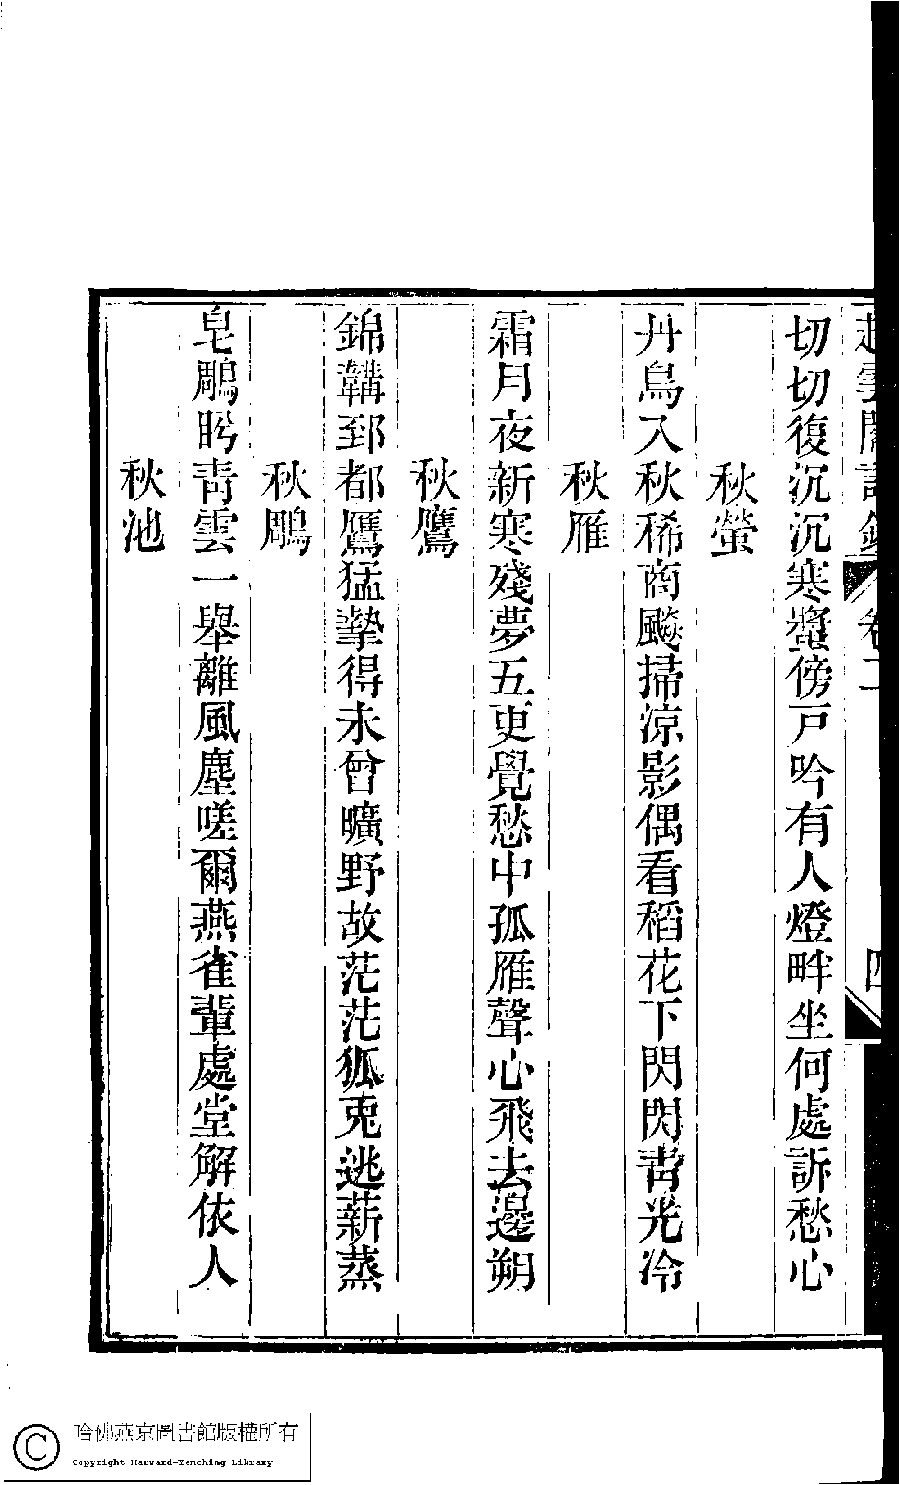 趙雲閣詩鈔 卷二 四
切切復沉沉寒螿傍戸吟有人燈畔坐何處訴愁心
秋螢
丹鳥入秋稀商飈掃涼影偶看稻花下閃閃靑光冷
秋雁
霜月夜新寒殘夢五更覺愁中孤雁聲心飛去邊朔
秋鷹
錦鞲郅都鷹猛摯得未曾曠野故茫茫狐兎逃薪蒸
秋鵰
皂鵰盻靑雲一舉離風塵嗟爾燕雀輩處堂解依人
秋池
哈佛燕京圖書館版權所有
Copyright Harvard-Yenching Library